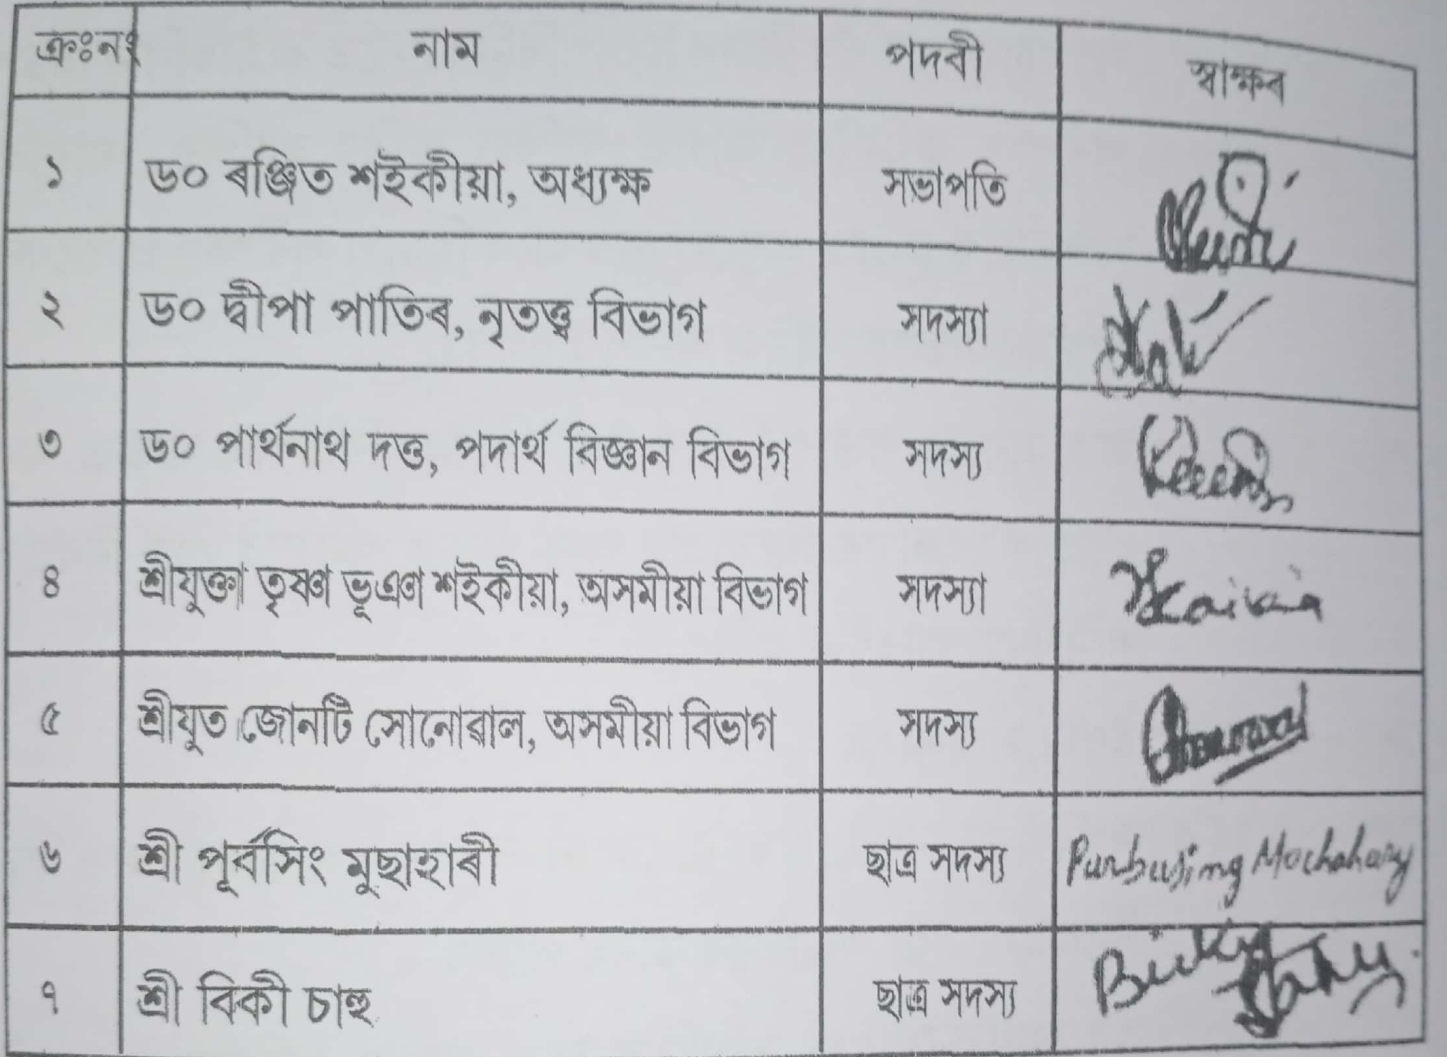 ক্ৰঃনং নাম পদবী স্বাক্ষৰ
১ ড০ ৰঞ্জিত শইকীয়া, অধ্যক্ষ সভাপতি
২ ড০ দ্বীপা পাতিৰ, নৃতত্ত্ব বিভাগ সদস্যা
৩ ড০ পাৰ্থনাথ দত্ত, পদাৰ্থ বিজ্ঞান বিভাগ সদস্য
৪ শ্ৰীযুক্তা তৃষ্ণা ভূএা শইকীয়া, অসমীয়া বিভাগ সদস্যা
৫ শ্ৰীযুত জোনটি সোনোৱাল, অসমীয়া বিভাগ সদস্য
৬ শ্ৰী পূৰ্বসিং মুছাহাৰী ছাত্ৰ সদস্য Purbusing Mochahary
৭ শ্ৰী বিকী চাহু ছাত্ৰ সদস্য Bicky Sahu